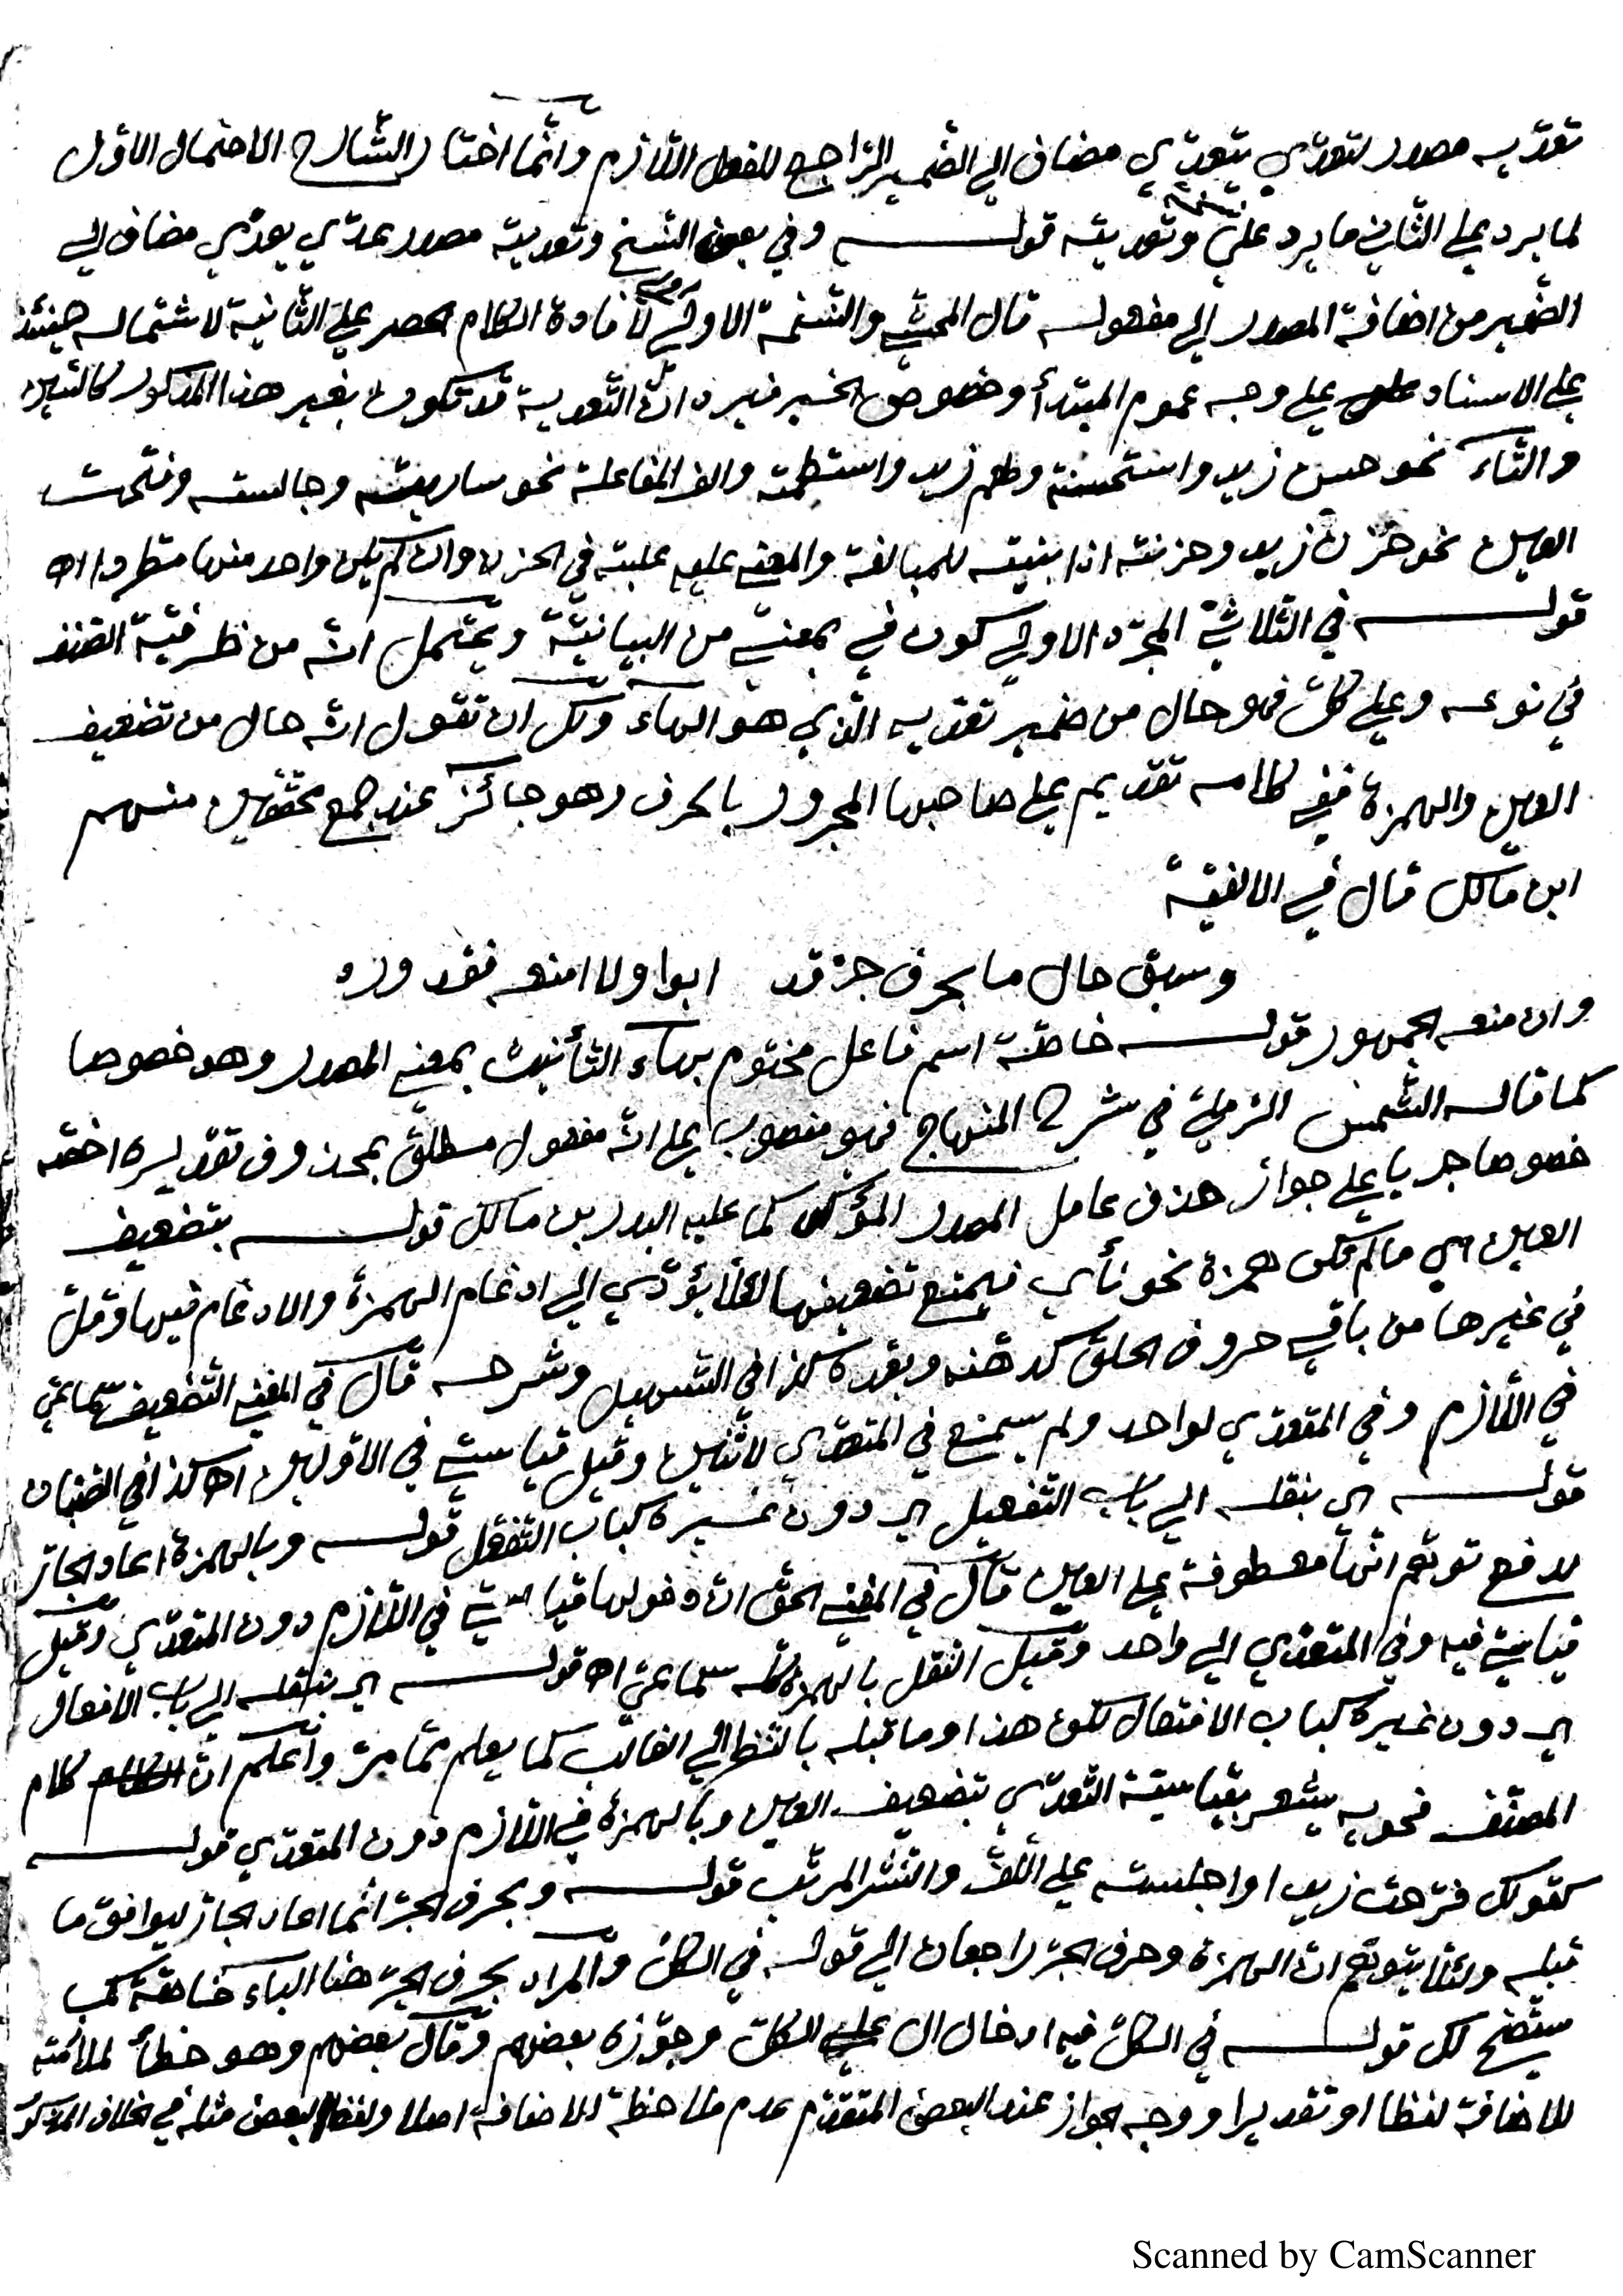 تعدّيه مصدر لتعدّى يتعدّى مضاف الى الضّمير الرّاجع للفعل اللّازم وانّما اختار الشّارح الاحتمال الاوّل
لما يرد على الثّاني ما يرد على نسخة وتعديته قولـــه وفي بعض النّسخ وتعديته مصدر عدّى يعدّي مضاف الى
الضّمير من اضافة المصدر الى مفعوله قال المحشّي والنّسخة الاولى لافادة الكلام الحصر على الثّانية لاشتماله حينئذ
على الاسناد على وجه عموم المبتدأ وخصوص الخبر فيرد انّ التّعدية قد تكون بغير هذا المذكور كالسّين
والتّاء نحو حسن زيد واستحسنته وطعم زيد واستطعمته والف المفاعلة نحو سايرته وجالسته وفتحت
العين نحو حزن زيد وحزنته اذا بنيته للمبالغة والمعنى عليه غلبته في الحزن وان لم يكن واحد منها مطردا اه
قولـــه في الثّلاثيّ المجرّد الاولى كون في بمعنى من البيانيّة ويحتمل انّه من ظرفيّة الصّنف
في نوعه وعلى كلّ فهو حال من ضمير تعديه الّذي هو الهاء ولك ان تقول انّه حال من تضعيف
العين والهمزة ففي كلامه تقديم على صاحبها المجرور بالحرف وهو جائز عند جمع محقّقين منهم
ابن مالك قال في الالفيّة
وسبق حال ما بحرف جرّ قد ابوا ولا امنعه فقد ورد
وان منعه الجمهور قولـــه خاصّة اسم فاعل مختوم بهاء التّأنيث بمعنى المصدر وهو خصوصا
كما قاله الشّمس الرّمليّ في شرح المنهاج فهو منصوب على انّه مفعول مطلق بمحذوف تقديره اخصّه
خصوصا جريا على جواز حذف عامل المصدر المؤكّد كما عليه البدر بن مالك قولـــه بتضعيف
العين اي ما لم تكن همزة نحو نأى فيمتنع تضعيفها لئلّا يؤدّي الى ادغام الهمزة والادغام فيها وقلّ
في غيرها من باقي حروف الحلق كدهّنه وبعّده كذا في التسهيل وشرحه قال في المغني التّضعيف سماعيّ
في اللّازم وفي المتعدّي لواحد ولم يسمع في المتعدّي لاثنين وقيل قياسيّ في الاوّلين اه كذا في الصّبّان
قولـــه اي بنقله الى باب التّفعيل اي دون غيره كباب التّفعّل قولـــه وبالهمزة اعاد الجارّ
لدفع توهّم انّها معطوفة على العين قال في المغني الحقّ انّ دخولها قياسيّ في اللّازم دون المتعدّي وقيل
قياسيّ فيه وفي المتعدّي الى واحد وقيل النقل بالهمزة كلّه سماعيّ اه قولـــه اي بنقله الى باب الافعال
اي دون غيره كباب الافتعال لكن هذا وما قبله بالنّظر الى الغالب كما يعلم ممّا مرّ واعلم انّ كلام
المصنّف فحويه يشعر بقياسيّة التّعدّي بتضعيف العين وبالهمزة في اللّازم دون المتعدّي قولـــه
كقولك فرّحت زيدا واجلسته على اللّفّ والنّشر المرتّب قولـــه وبحرف الجرّ انّما اعاد الجارّ ليوافق ما
قبله ولئلّا يتوهّم انّ الهمزة وحرف الجرّ راجعان الى قوله في الكلّ والمراد بحرف الجرّ هنا الباء خاصّة كما
سيتّضح لك قولـــه في الكلّ فيه ادخال ال على الكلّ وجوّزه بعضهم وقال بعضهم وهو خطأ لملازمته
للاضافة لفظا او تقديرا ووجه الجواز عند البعض المتقدّم عدم ملاحظة الاضافة اصلا ولفظ البعض مثله في الخلاف المذكور
Scanned by CamScanner